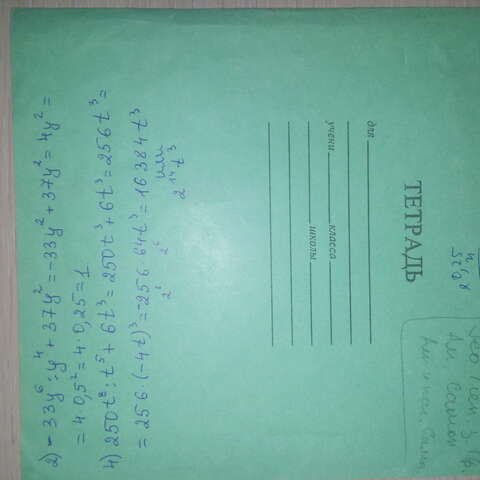 2) - 33y⁶ : y⁴ + 37y² = -33y² + 37y² = 4y² =
= 4·0,5² = 4·0,25 = 1
4) 250t⁸ : t⁵ + 6t³ = 250t³ + 6t³ = 256t³ =
= 256·(-4t)³ = -256·64t³ = 16384t³
2⁸ 2⁶ или
2¹⁴t³
ТЕТРАДЬ
для
учени класса
школы
0,25